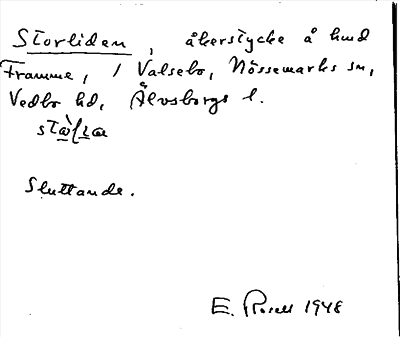 Storliden, åkerstycke å hmd
Framme, 1 Valsebo, Nössemarks sn,
Vedbo hd, Älvsborgs l.
Sluttande.
E. Rosell 1948